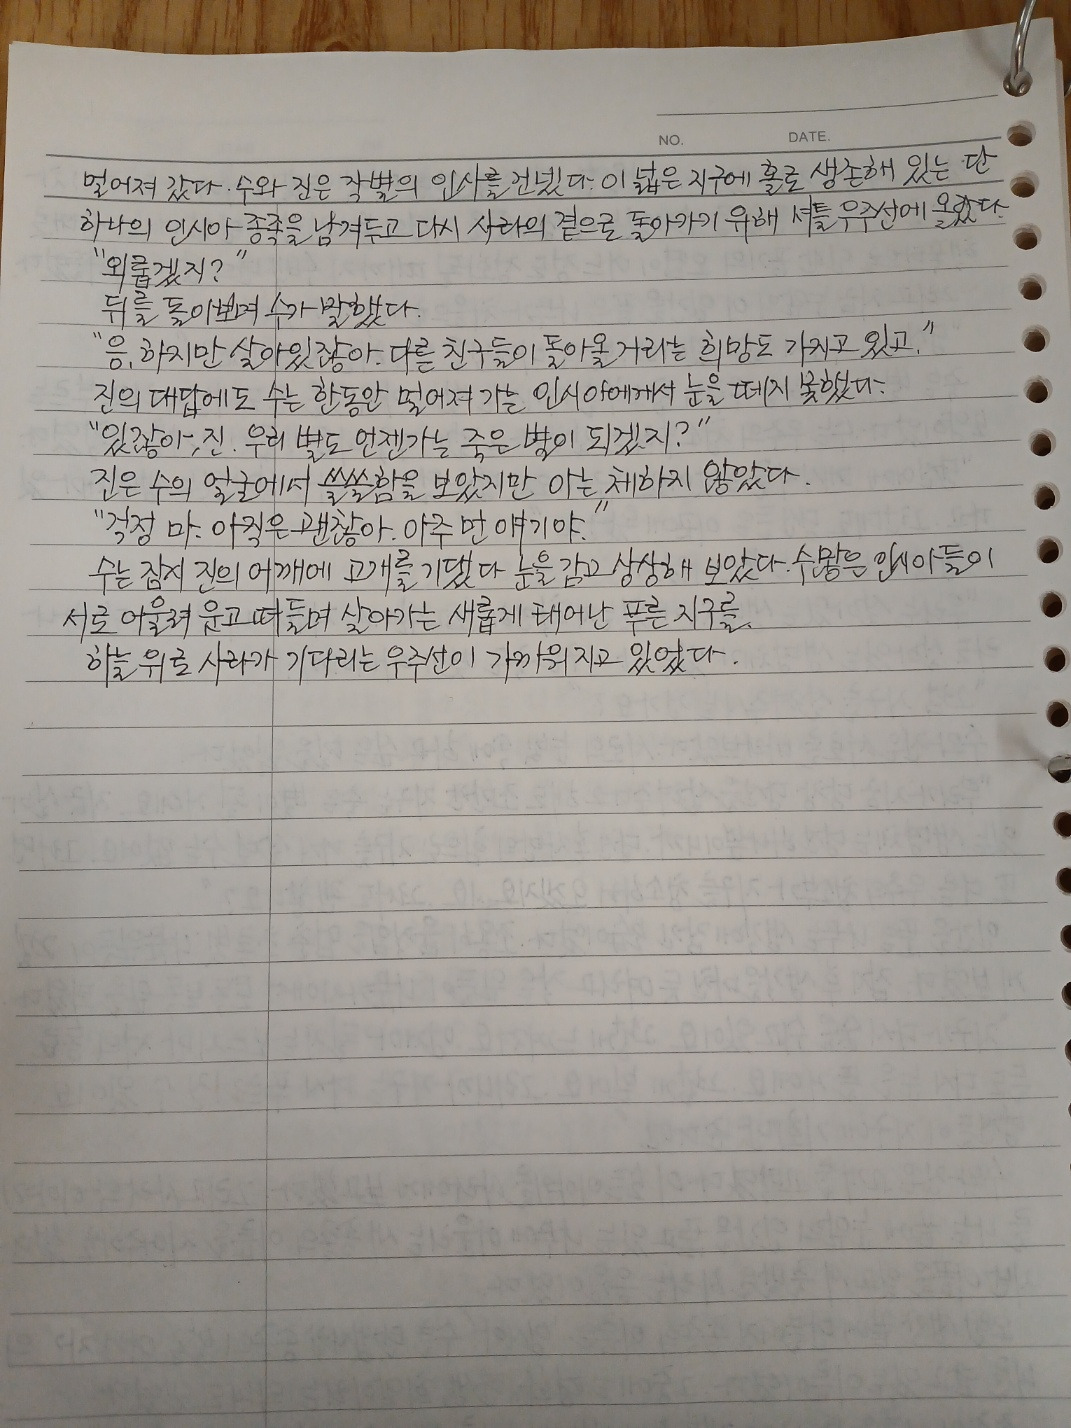 NO. DATE.
멀어져 갔다. 수와 진은 작별의 인사를 건넸다. 이 넓은 지구에 홀로 생존해 있는 단
하나의 인시아 종족을 남겨두고 다시 사라의 곁으로 돌아가기 위해 셔틀 우주선에 올랐다.
"외롭겠지?"
뒤를 돌아보며 수가 말했다.
"응, 하지만 살아있잖아. 다른 친구들이 돌아올 거라는 희망도 가지고 있고."
진의 대답에도 수는 한동안 멀어져 가는 인시아에게서 눈을 떼지 못했다.
"있잖아, 진. 우리 별도 언젠가는 죽은 별이 되겠지?"
진은 수의 얼굴에서 쓸쓸함을 보았지만 아는 체하지 않았다.
"걱정 마. 아직은 괜찮아. 아주 먼 얘기야."
수는 잠시 진의 어깨에 고개를 기댔다 눈을 감고 상상해 보았다. 수많은 인시아들이
서로 어울려 웃고 떠들며 살아가는 새롭게 태어난 푸른 지구를.
하늘 위로 사라가 기다리는 우주선이 가까워지고 있었다.